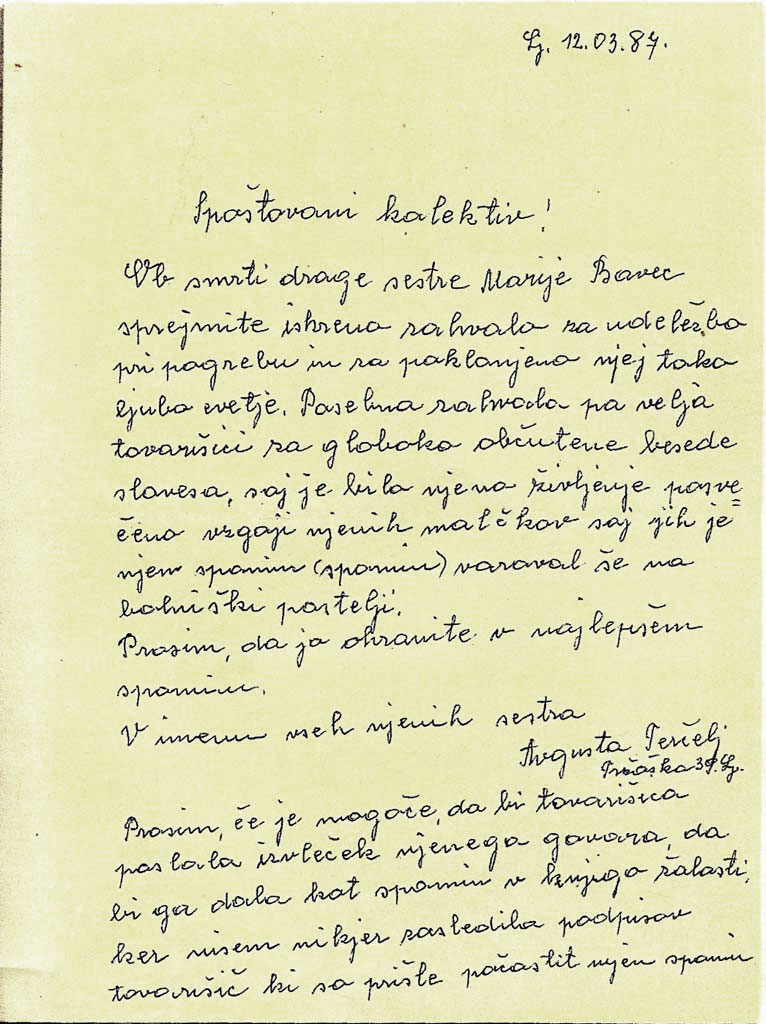 Lj. 12.03.87.
Spoštovani kolektiv!
Ob smrti drage sestre Marije Bavec
sprejmite iskreno zahvalo za udeležbo
pri pogrebu in za poklonjeno njej tako
ljubo cvetje. Posebna zahvala pa velja
tovarišici za globoko občutene besede
slovesa, saj je bilo njeno življenje posve=
čeno vzgoji njenih malčkov saj jih je
njen spomin (spomin) varoval še na
bolniški postelji.
Prosim, da jo ohranite v najlepšem
spominu.
V imenu vseh njenih sestra
Avgusta Terčelj
Tržaška 39. Lj.
Prosim, če je mogoče, da bi tovarišica
poslala izvleček njenega govora, da
bi ga dala kot spomin v knjigo žalosti,
ker nisem nikjer zasledila podpisov
tovarišic ki so prišle počastit njen spomin